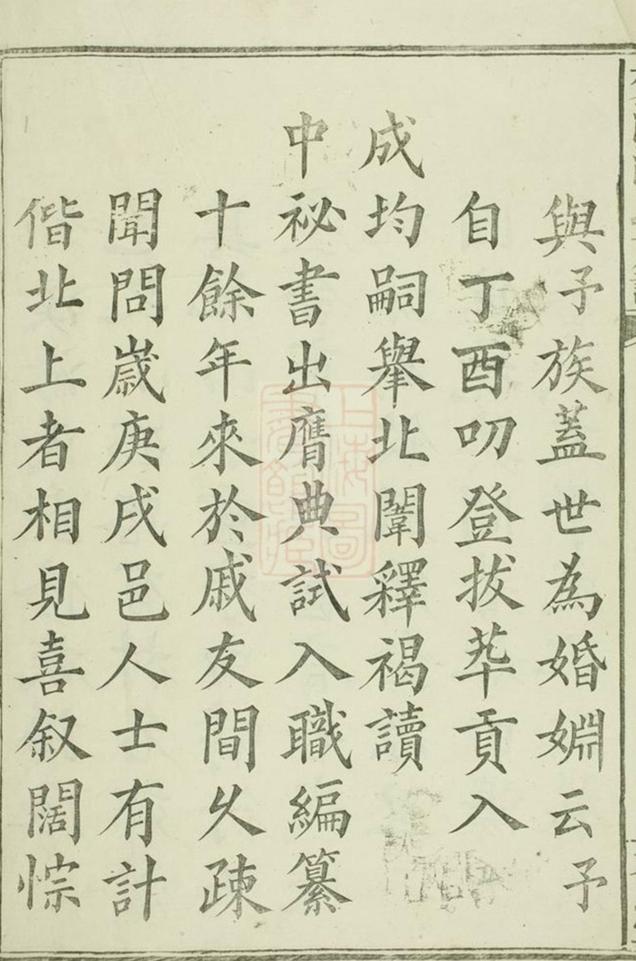 與予族蓋世為婚婣云予
自丁酉叨登拔萃貢入
成均嗣舉北闈釋褐讀
中祕書出膺典試入職編纂
十餘年來於戚友間久疎
聞問嵗庚戌邑人士有計
偕北上者相見喜叙闊悰
上海圖書館藏